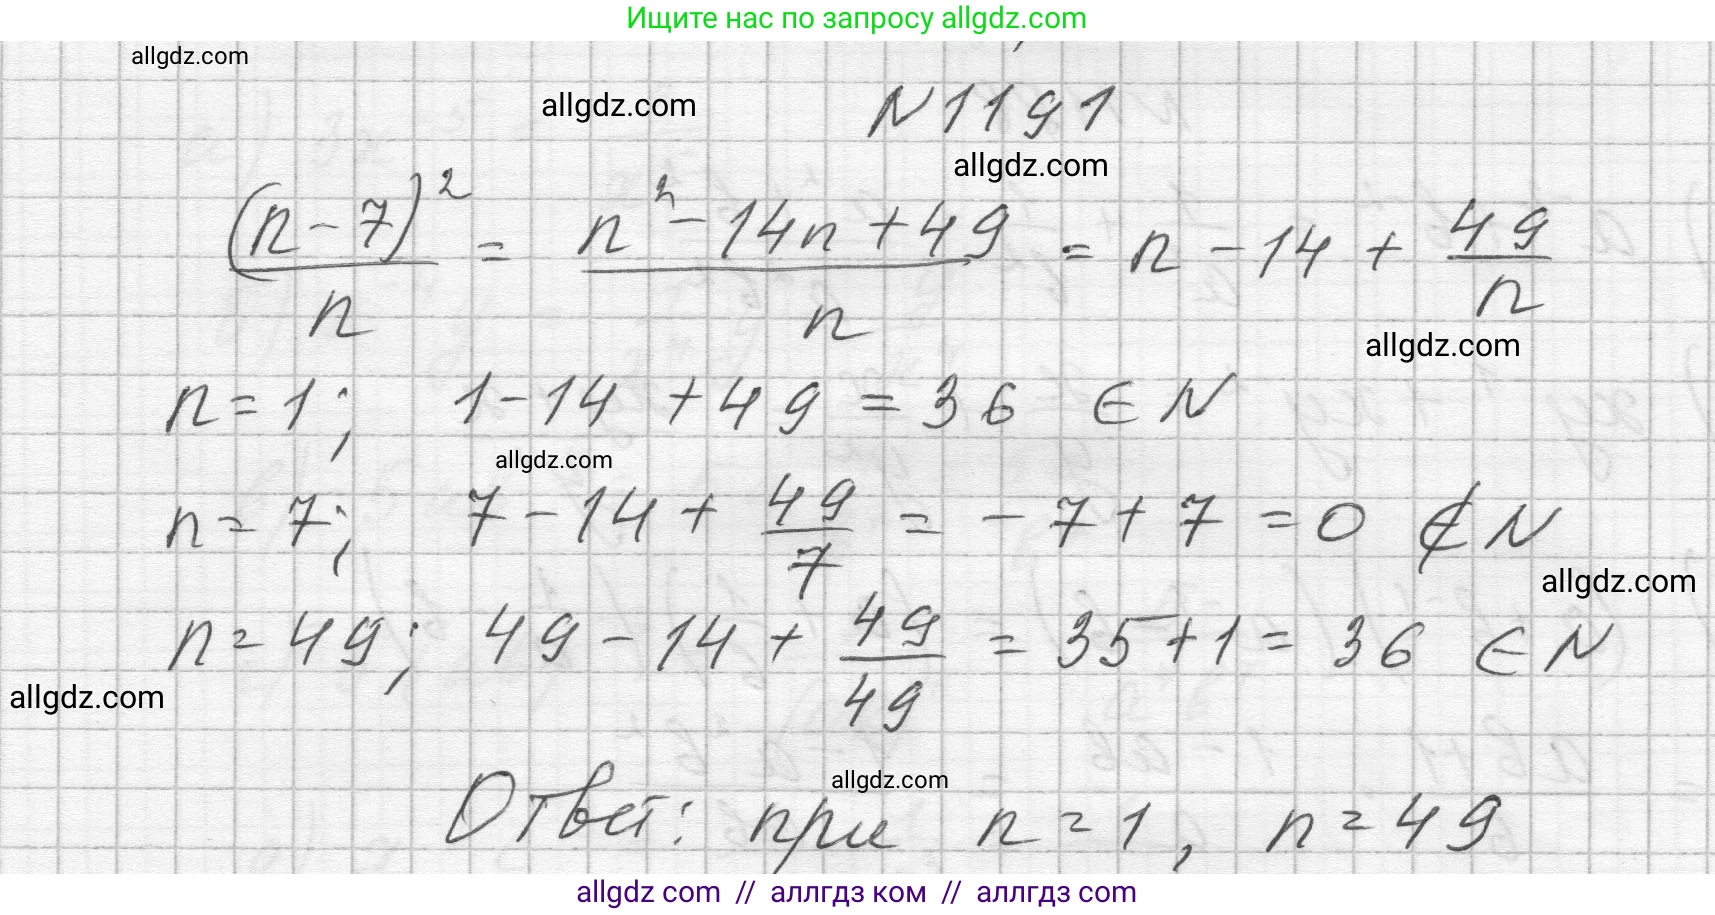 Ищите нас по запросу allgdz.com
allgdz.com
allgdz.com
N1191
allgdz.com
(n-7)²/n = n²-14n+49/n = n-14+49/n
allgdz.com
n=1; 1-14+49=36 ∈ N
allgdz.com
n=7; 7-14+49/7=-7+7=0 ∉ N
allgdz.com
n=49; 49-14+49/49=35+1=36 ∈ N
allgdz.com
allgdz.com
Ответ: при n=1, n=49
allgdz com // аллгдз ком // аллгдз com